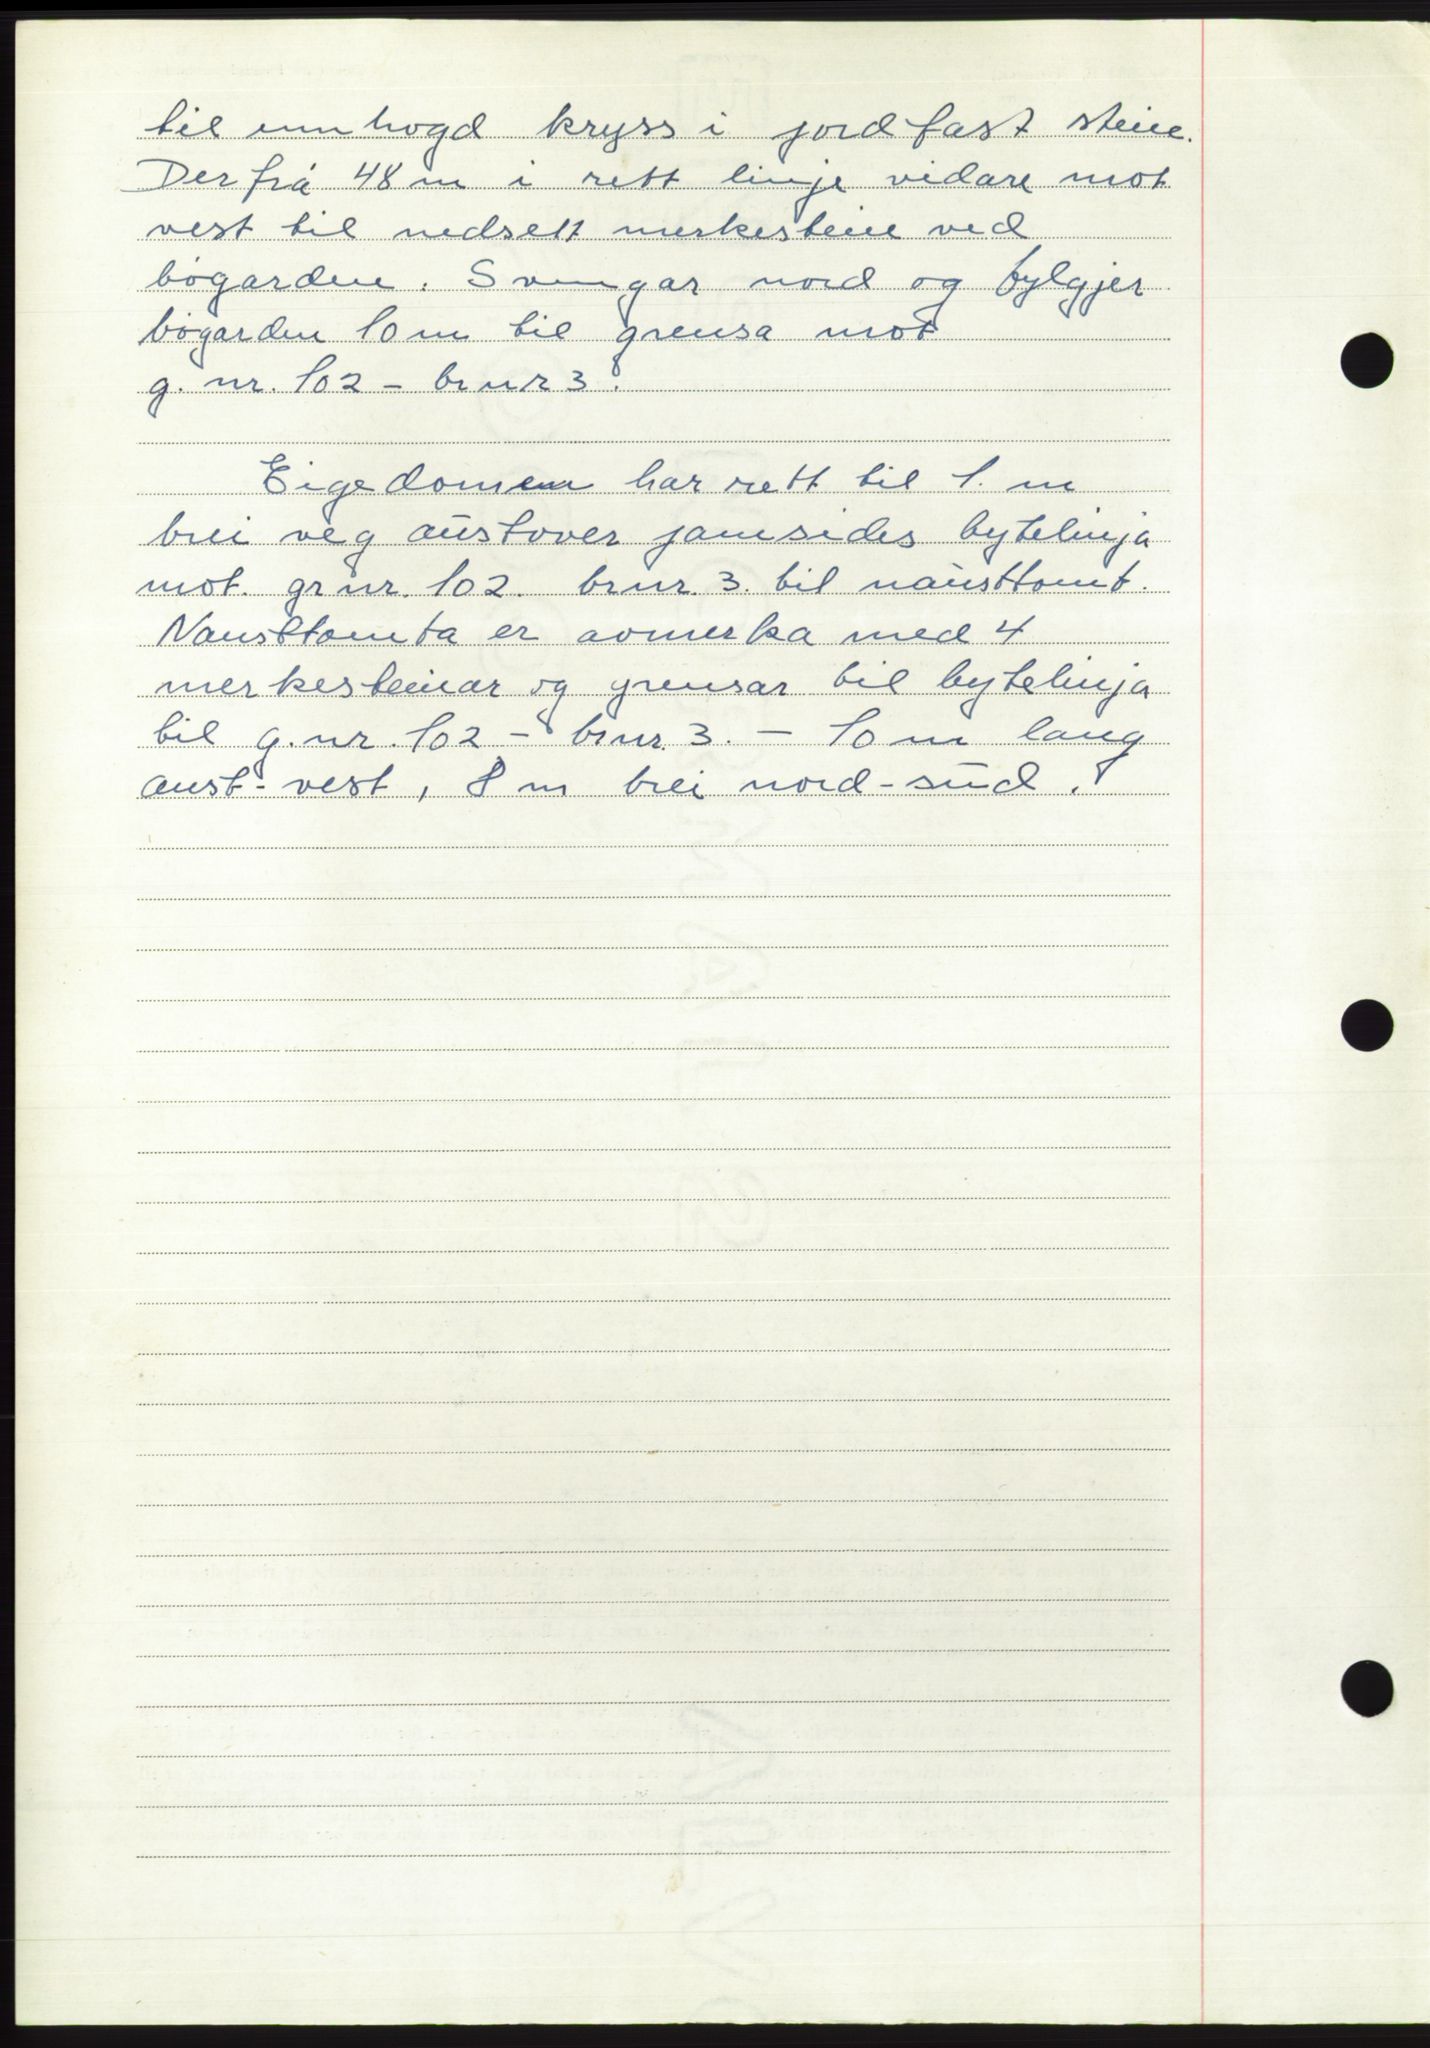 til innhogd kryss i jordfast stein.
Derfrå 48 m i rett linje vidare mot
vest til nedsett merkestein ved
bøgarden. Svingar nord og fylgjer
bøgarden 10 m til grensa mot
g. nr. 102 - br nr 3.
Eigedomen har rett til 1. m
brei veg austover jamsides bytelinja
mot. gr nr. 102. br nr. 3. til nausttomt.
Nausttomta er avmerka med 4
merkesteinar og grensar til bytelinja
til g. nr. 102 - br nr. 3. - 10 m lang
aust - vest, 8 m brei nord - sud.